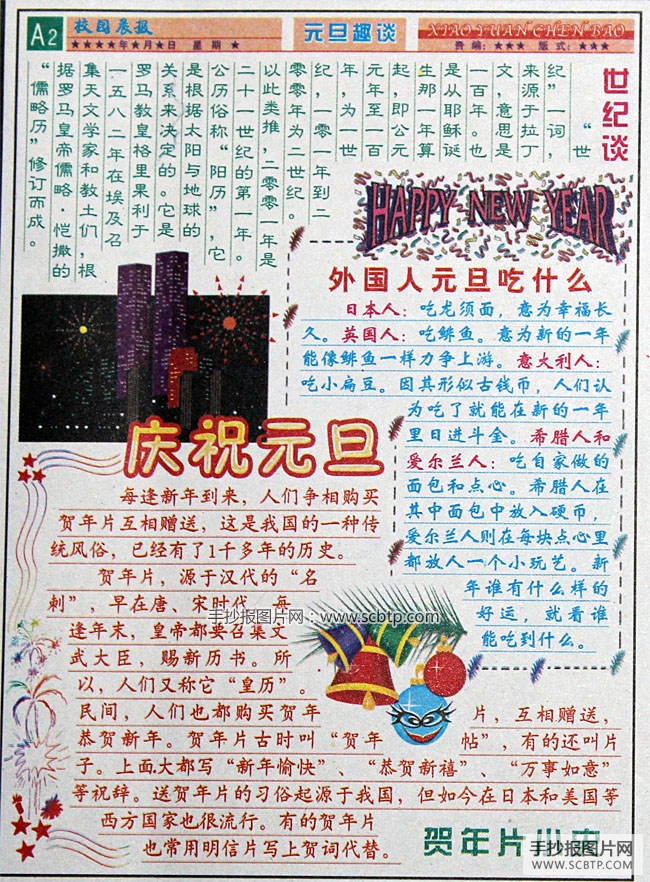 A2
校园晨报
★★★★年★月★日 星期★
元旦趣谈
XIAO YUAN CHEN BAO
责编：★★★ 版式：★★★
世纪谈
“世
纪”一词，
来源于拉丁
文，意思是
一百年。也
是从耶稣诞
生那一年算
起，即公元
元年至一百
年，为世
纪，一零一年到二
零零年为二世纪。
以此类推，二零零一年是
二十一世纪的第一年。
公历俗称“阳历”，它
是根据太阳与地球的
关系来决定的。它是
罗马教皇格里果利于
一五八二年在埃及召
集天文学家和教士们，根
据罗马皇帝儒略·恺撒的
“儒略历”修订而成。
HAPPY NEW YEAR
外国人元旦吃什么
日本人：吃龙须面，意为幸福长
久。英国人：吃鲱鱼。意为新的一年
能像鲱鱼一样力争上游。意大利人：
吃小扁豆。因其形似古钱币，人们认
为吃了就能在新的一年
里日进斗金。希腊人和
爱尔兰人：吃自家做的
面包和点心。希腊人在
其中面包中放入硬币，
爱尔兰人则在每块点心里
都放入一个小玩艺。新
年谁有什么样的
好运，就看谁
能吃到什么。
庆祝元旦
每逢新年到来，人们争相购买
贺年片互相赠送，这是我国的一种传
统风俗，已经有了1千多年的历史。
贺年片，源于汉代的“名
刺”，早在唐、宋时代，每
逢年末，皇帝都要召集文
武大臣，赐新历书。所
以，人们又称它“皇历”。
民间，人们也都购买贺年片，互相赠送，
恭贺新年。贺年片古时叫“贺年帖”，有的还叫片
子。上面大都写“新年愉快”、“恭贺新禧”、“万事如意”
等祝辞。送贺年片的习俗起源于我国，但如今在日本和美国等
西方国家也很流行。有的贺年片
也常用明信片写上贺词代替。
贺年片小史
手抄报图片网：www.scbtp.com
手抄报图片网
WWW.SCBTP.COM